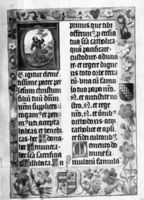 E igitur clemē
tissime pater per
jesum christum
filiū tuū dñm
nr̄m supplices
rogam⁹ et peti
m⁹ uti accepta
habeas et bene
dicas hec dona
hec munera
hec sācta sacrificia
illibata In
primis que tibi
offerim⁹ p ecclesia
tua sc̄a catholica
quā pacificare
custodire aduna
re et regere digne
ris toto orbe terra
rū una cū famu
lo tuo papa n̄ro
N. et antistite n̄ro
N. et rege
n̄ro N. et omib⁹
orthodoxis atq̃
catholice et apo
stolice fidei cul
toribus
Memento do
mine fa
mulorū famularū